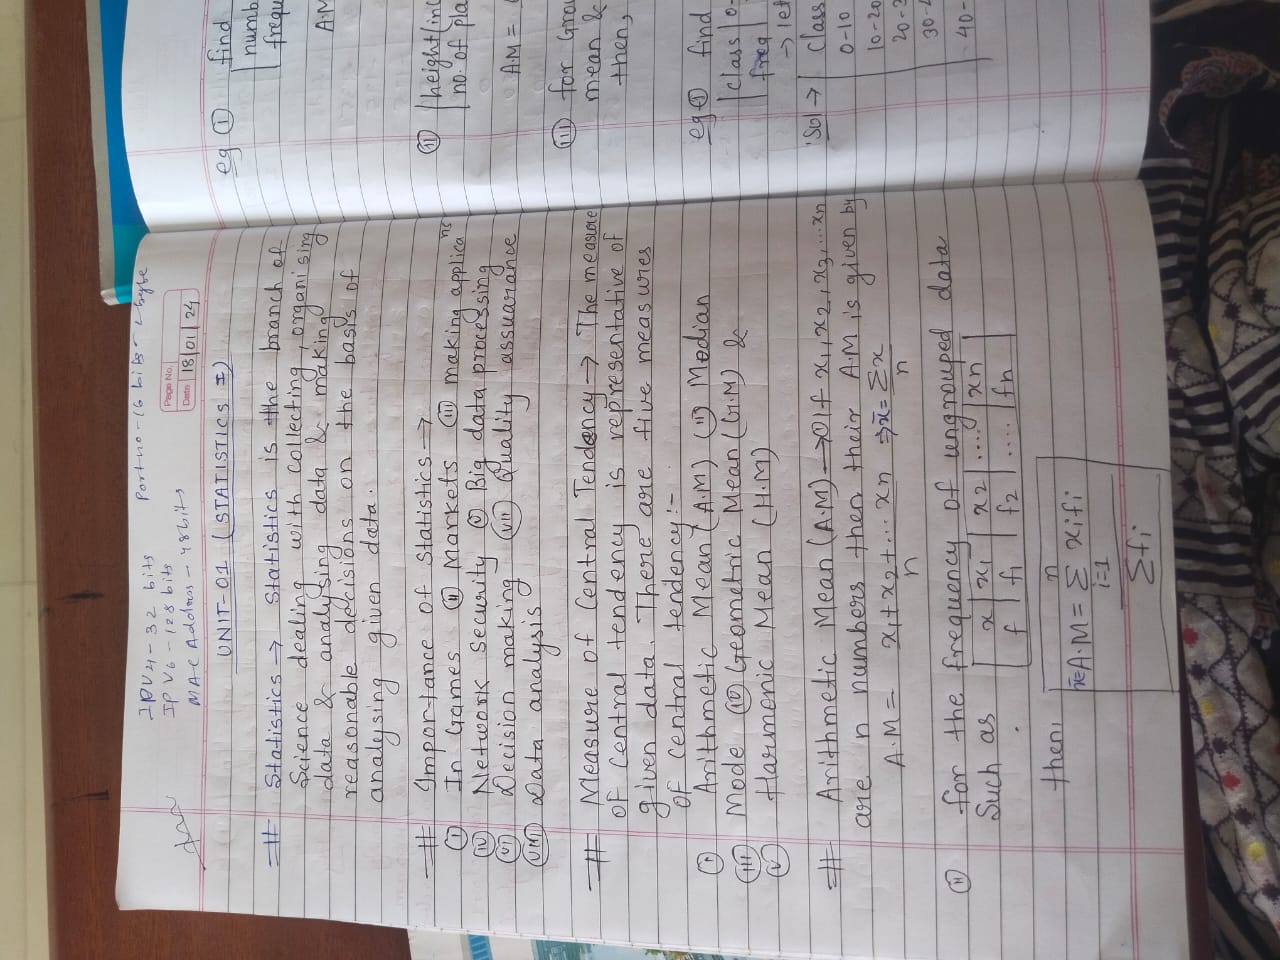 IPV4 - 32 bits
Port no - 16 bits - 2 byte
IPV6 - 128 bits
MAC Address - 48 bits
Page No.
Date 18 01 24
UNIT-01 (STATISTICS I)
# Statistics → Statistics is the branch of
Science dealing with collecting, organising
data & analysing data & making
reasonable decisions on the basis of
analysing given data.
# Importance of statistics →
(i) In Games (ii) Markets (iii) making applica
(iv) Network security (v) Big data processing
(vi) Decision making (vii) Quality assuariance
(viii) Data analysis
# Measure of Central Tendency → The measure
of central tendency is representative of
given data. There are five measures
of central tendency:-
(i) Arithmetic Mean (A.M) (ii) Median
(iii) Mode (iv) Geometric Mean (G.M) &
(v) Harmonic Mean (H.M)
# Arithmetic Mean (A.M) → (i) If x1, x2, x3, ... xn
are n numbers then their A.M is given by
A.M = x1 + x2 + ... xn / n ⇒ x̄ = Σx / n
(ii) for the frequency of ungrouped data
Such as
x | x1 | x2 | .... | xn
f | f1 | f2 | .... | fn
then,
x̄ = A.M = n Σ i=1 xifi / Σfi
eg (i) find
numb
frequ
A.M
(ii) height (in
no. of pla
A.M =
(iii) for Grou
mean &
then,
eg (i) find
class 0-
freq
→ let
Sol → class
0-10
10-20
20-3
30-4
40-